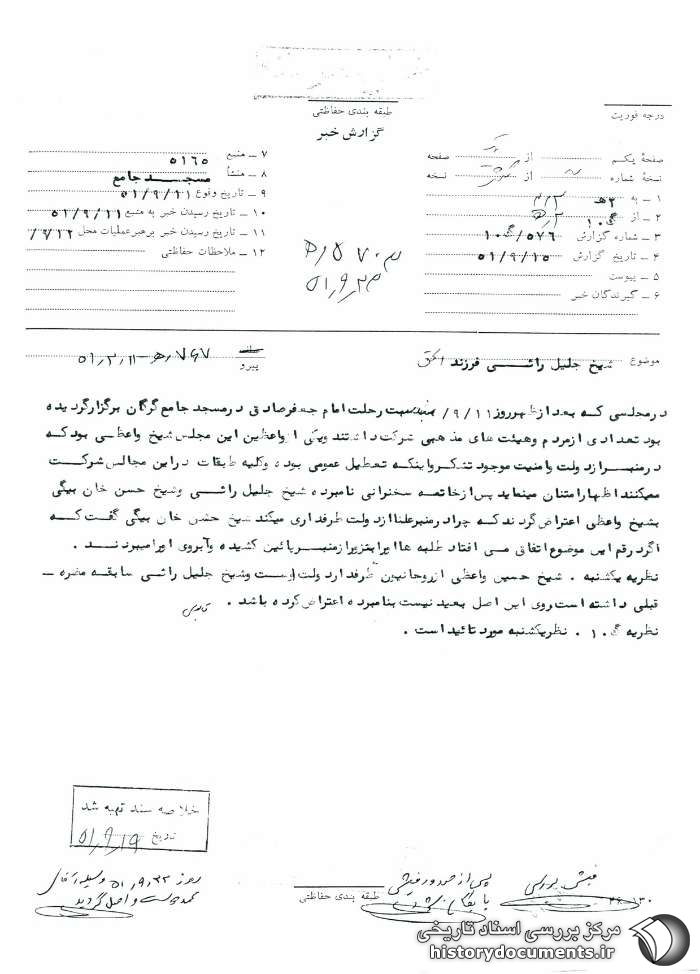 درجه فوریت
طبقه بندی حفاظتی
گزارش خبر
صفحهٔ یکم از صفحه
نسخهٔ شماره از نسخه
۱ ـ به
۲ ـ از
۳ ـ شماره گزارش ۵۷۶/گ ۱۰
۴ ـ تاریخ گزارش ۵۱/۹/۱۵
۵ ـ پیوست
۶ ـ گیرندگان خبر
۷ ـ منبع ۵۱۶۵
۸ ـ منشأ مسجد جامع
۹ ـ تاریخ وقوع ۵۱/۹/۱۱
۱۰ ـ تاریخ رسیدن خبر به منبع ۵۱/۹/۱۱
۱۱ ـ تاریخ رسیدن خبر برهبرعملیات محل ۹/۱۲/
۱۲ ـ ملاحظات حفاظتی
۵۱/۹/۲۳
موضوع شیخ جلیل رائسی فرزند
پیرو
درمجلسی که بعد ازظهرروز ۹/۱۱/ رحلت امام جعفرصادق درمسجد جامع گرگان برگزارگردیده
بود تعدادی ازمردم وهیئت های مذهبی شرکت داشتند ویکی ازواعظین این مجلس شیخ واعظی بودکه
درمنبرازدولت وامنیت موجود تشکرواینکه تعطیل عمومی بوده وکلیه طبقات دراین مجالس شرکت
میکنند اظهارامتنان مینماید پس ازخاتمه سخنرانی نامبرده شیخ جلیل رائسی وشیخ حسن خان بیگی
بشیخ واعظی اعتراض گردندکه چرا درمنبرعلنا ازدولت طرفداری میکند شیخ حسن خان بیگی گفت که
اگردرقم این موضوع اتفاق می افتاد طلبه ها اورابتیزیرازمنبرپائین کشیده وآبروی اورامیبردند .
نظریه یکشنبه . شیخ حسین واعظی ازروحانیون طرفدار دولت است وشیخ جلیل رائسی سابقه مضره ـ
قبلی داشته است روی این اصل بعید نیست بنامبرده اعتراض کرده باشد .
نظریه گ ۱۰ . نظریکشنبه مورد تائید است .
خلاصه سند تهیه شد
تاریخ ۵۱/۹/۱۹
طبقه بندی حفاظتی
فیش بررسی
مرکز بررسی اسناد تاریخی
historydocuments.ir